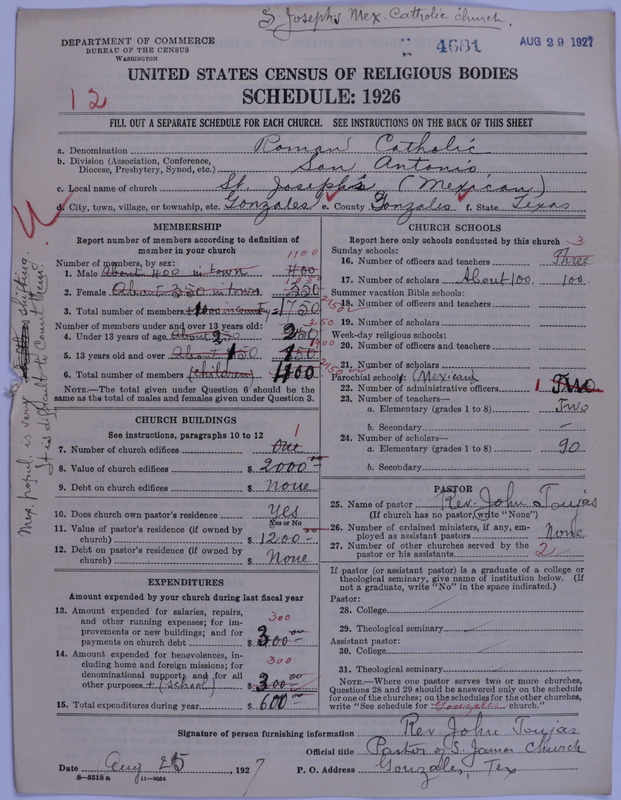 S. Josephs Mex. Catholic church.
DEPARTMENT OF COMMERCE
BUREAU OF THE CENSUS
WASHINGTON
4681
AUG 29 1927
UNITED STATES CENSUS OF RELIGIOUS BODIES
12
SCHEDULE: 1926
FILL OUT A SEPARATE SCHEDULE FOR EACH CHURCH. SEE INSTRUCTIONS ON THE BACK OF THIS SHEET
a. Denomination Roman Catholic
b. Division (Association, Conference, Diocese, Presbytery, Synod, etc.) San Antonio
c. Local name of church St. Joseph's (Mexican)
d. City, town, village, or township, etc. Gonzales e. County Gonzales f. State Texas
MEMBERSHIP
Report number of members according to definition of
member in your church
Number of members, by sex:
1100
1. Male About 400 in town 400
2. Female About 350 in town 350
3. Total number of members 1750
2150
Number of members under and over 13 years old:
4. Under 13 years of age About 250
5. 13 years old and over About 150
1900
6. Total number of members (children)
2150
NOTE.—The total given under Question 6 should be the
same as the total of males and females given under Question 3.
Mex. popul. is very shifting.
It is difficult to count them.
CHURCH BUILDINGS
See instructions, paragraphs 10 to 12
7. Number of church edifices One 1
8. Value of church edifices $ 2000.00
9. Debt on church edifices $ None
10. Does church own pastor's residence Yes
Yes or No
11. Value of pastor's residence (if owned by
church) $ 1200
12. Debt on pastor's residence (if owned by
church) $ None
EXPENDITURES
Amount expended by your church during last fiscal year
13. Amount expended for salaries, repairs,
and other running expenses; for im-
provements or new buildings; and for
payments on church debt $ 300.00
300
14. Amount expended for benevolences, in-
cluding home and foreign missions; for
denominational support; and for all
other purposes + (School) $ 300.00
300
15. Total expenditures during year $ 600.00
CHURCH SCHOOLS
Report here only schools conducted by this church
Sunday schools:
16. Number of officers and teachers Three 3
17. Number of scholars About 100 100
Summer vacation Bible schools:
18. Number of officers and teachers
19. Number of scholars
Week-day religious schools:
20. Number of officers and teachers
21. Number of scholars
Parochial schools: (Mexican)
22. Number of administrative officers 1 Two
23. Number of teachers—
a. Elementary (grades 1 to 8) Two
b. Secondary –
24. Number of scholars—
a. Elementary (grades 1 to 8) 90
b. Secondary
PASTOR
25. Name of pastor Rev. John Toujas
(If church has no pastor, write "None")
26. Number of ordained ministers, if any, em-
ployed as assistant pastors None
27. Number of other churches served by the
pastor or his assistants 2
If pastor (or assistant pastor) is a graduate of a college or
theological seminary, give name of institution below. (If
not a graduate, write "No" in the space indicated.)
Pastor:
28. College
29. Theological seminary
Assistant pastor:
30. College
31. Theological seminary
NOTE.—Where one pastor serves two or more churches,
Questions 28 and 29 should be answered only on the schedule
for one of the churches; on the schedules for the other churches,
write "See schedule for Gonzales church."
Signature of person furnishing information Rev. John Toujas
Official title Pastor of S. James Church
Date Aug 25, 1927 P. O. Address Gonzales, Tex
8—5518 a 11—9054